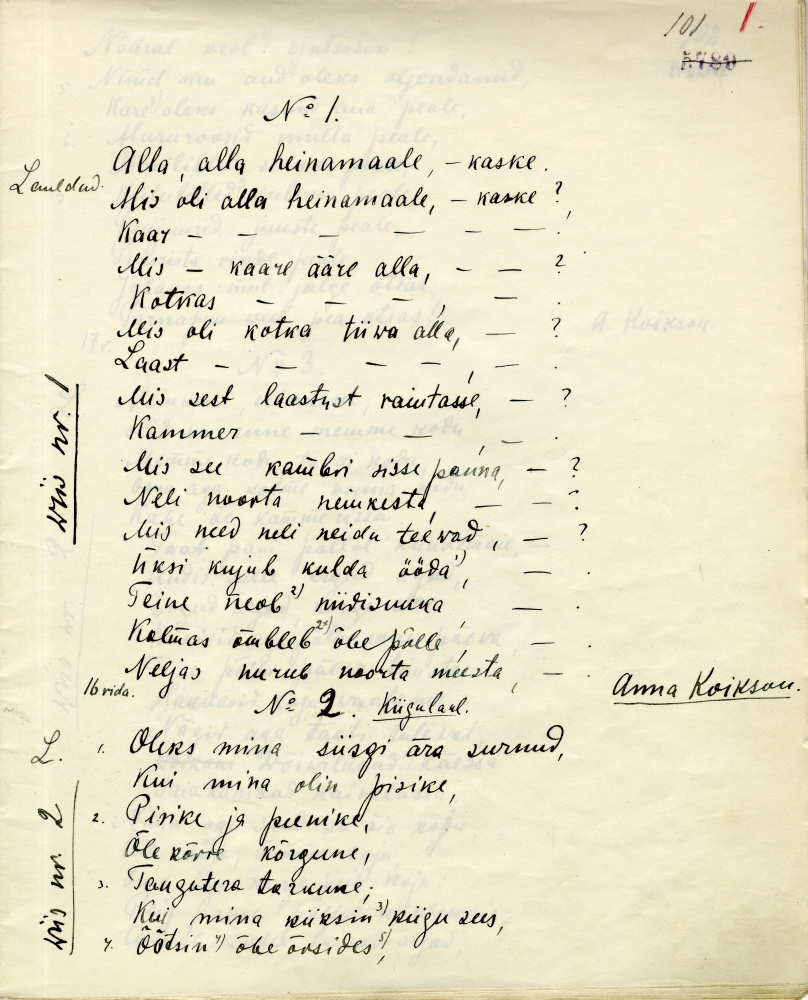 101 1.
5789
No 1.
Alla, alla heinamaale, – kaske.
Lauldud.
Mis oli alla heinamaale, – kaske?
Kaar – – – – – – .
Mis – kaare ääre alla, – – ?
Kotkas – – – – , – .
Mis oli kotka tiiwa alla, – ?
Laast – – – – – , – .
Mis sest laastust raiutasse, – ?
Kammer – – , – .
Mis see kambri sisse panna, – ?
Neli noorta neiukesta, – – ?
Mis need neli neidu teewad, – ?
Üksi kujub kulda ööda 1), – .
Teine neob 2) niidisuuka – .
Kolmas õmbleb 2a) õbe põlle, – .
Neljas nurub noorta meesta, – .
wiis nr. 1
16 rida.
Anna Koikson.
No 2. Kiigulaul.
L. 1. Oleks mina siisgi ära surnud,
Kui mina olin pisike,
2. Pisike ja peenike,
Õle kõrre kõrgune,
3. Tangutera tarkune;
Kui mina kiiksin 3) kiigu sees,
4. Õõtsin 4) õbe õrsides 5),
wiis nr 2
A. Koikson.